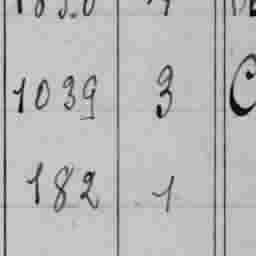 1039 3
182 1